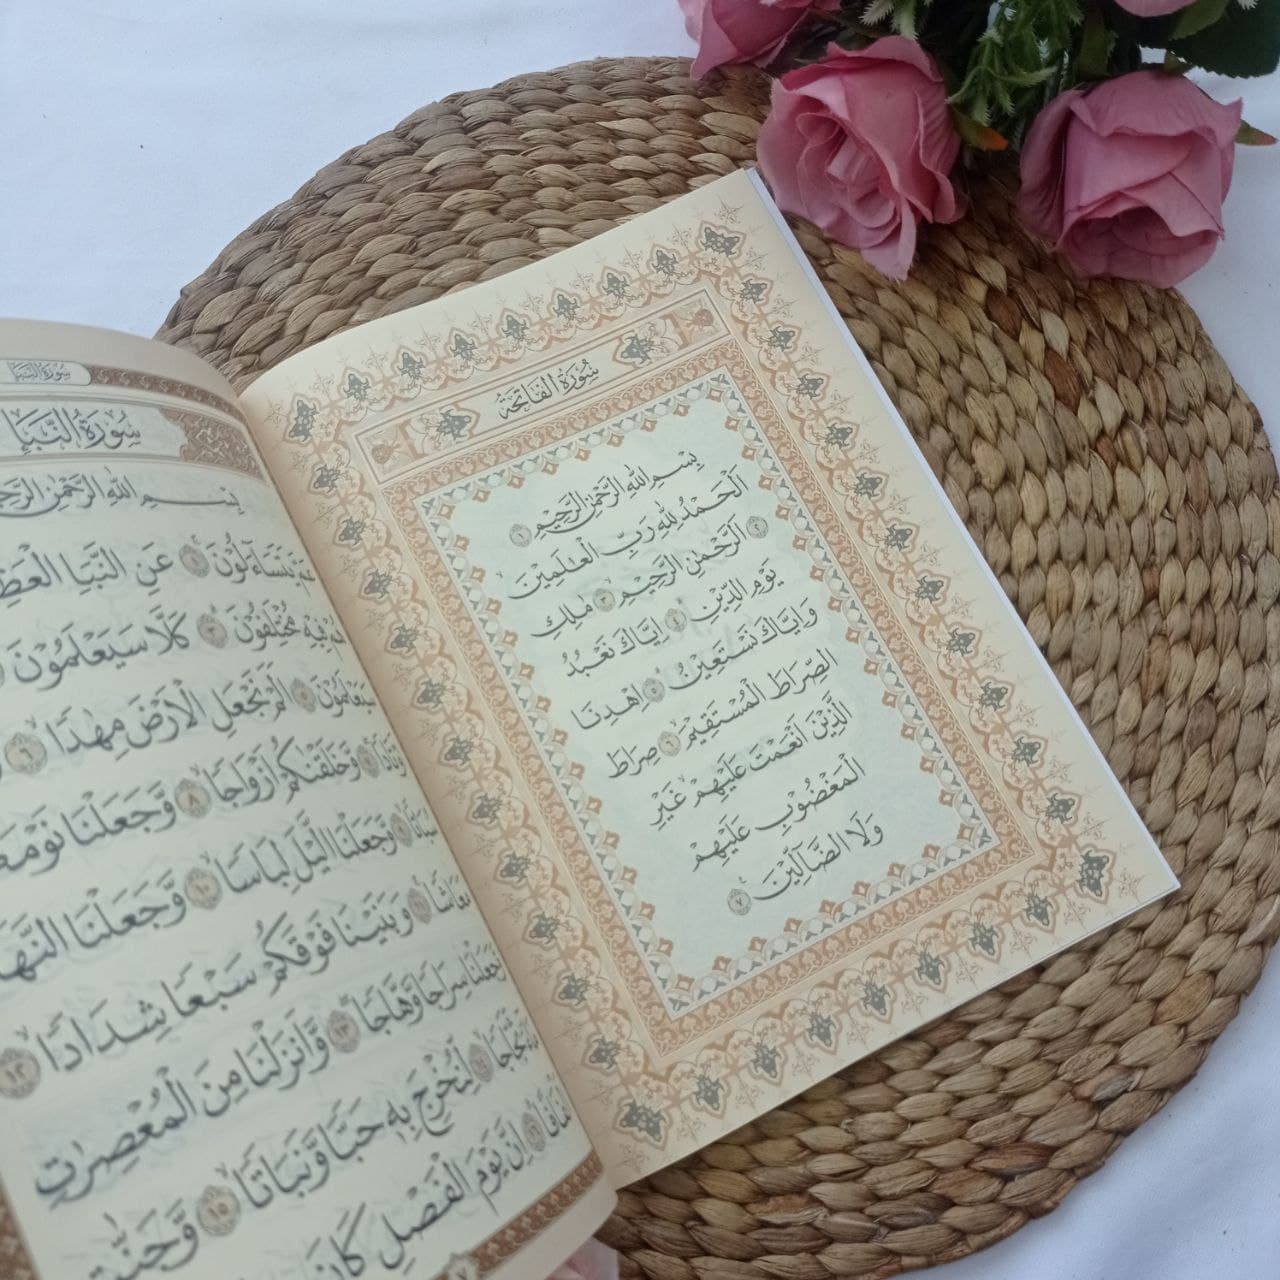 سُورَةُ الْفَاتِحَةِ
بِسْمِ اللّٰهِ الرَّحْمٰنِ الرَّحِيْمِ ١
اَلْحَمْدُ لِلّٰهِ رَبِّ الْعٰلَمِيْنَ
٢ اَلرَّحْمٰنِ الرَّحِيْمِ ٣ مٰلِكِ
يَوْمِ الدِّيْنِ ٤ اِيَّاكَ نَعْبُدُ
وَاِيَّاكَ نَسْتَعِيْنُ ٥ اِهْدِنَا
الصِّرَاطَ الْمُسْتَقِيْمَ ٦ صِرَاطَ
الَّذِيْنَ اَنْعَمْتَ عَلَيْهِمْ غَيْرِ
الْمَغْضُوْبِ عَلَيْهِمْ
وَلَا الضَّاۤلِّيْنَ ٧
سُورَةُ النَّبَإِ
سُورَةُ النَّبَإِ
بِسْمِ اللّٰهِ الرَّحْمٰنِ
يَتَسَاۤءَلُوْنَ ١ عَنِ النَّبَاِ
فِيْهِ مُخْتَلِفُوْنَ ٣ كَلَّا سَيَعْلَمُوْنَ
سَيَعْلَمُوْنَ ٥ اَلَمْ نَجْعَلِ الْاَرْضَ مِهٰدًا ٦
وَّخَلَقْنٰكُمْ اَزْوَاجًا ٨ وَّجَعَلْنَا
وَّجَعَلْنَا الَّيْلَ لِبَاسًا ١٠ وَّجَعَلْنَا
مَعَاشًا ١١ وَبَنَيْنَا فَوْقَكُمْ سَبْعًا شِدَادًا ١٢
وَّجَعَلْنَا سِرَاجًا وَّهَّاجًا ١٣ وَّاَنْزَلْنَا مِنَ الْمُعْصِرٰتِ
ثَجَّاجًا ١٤ لِّنُخْرِجَ بِهٖ حَبًّا وَّنَبَاتًا ١٥ وَّجَنّٰتٍ
اَلْفَافًا ١٦ اِنَّ يَوْمَ الْفَصْلِ كَانَ